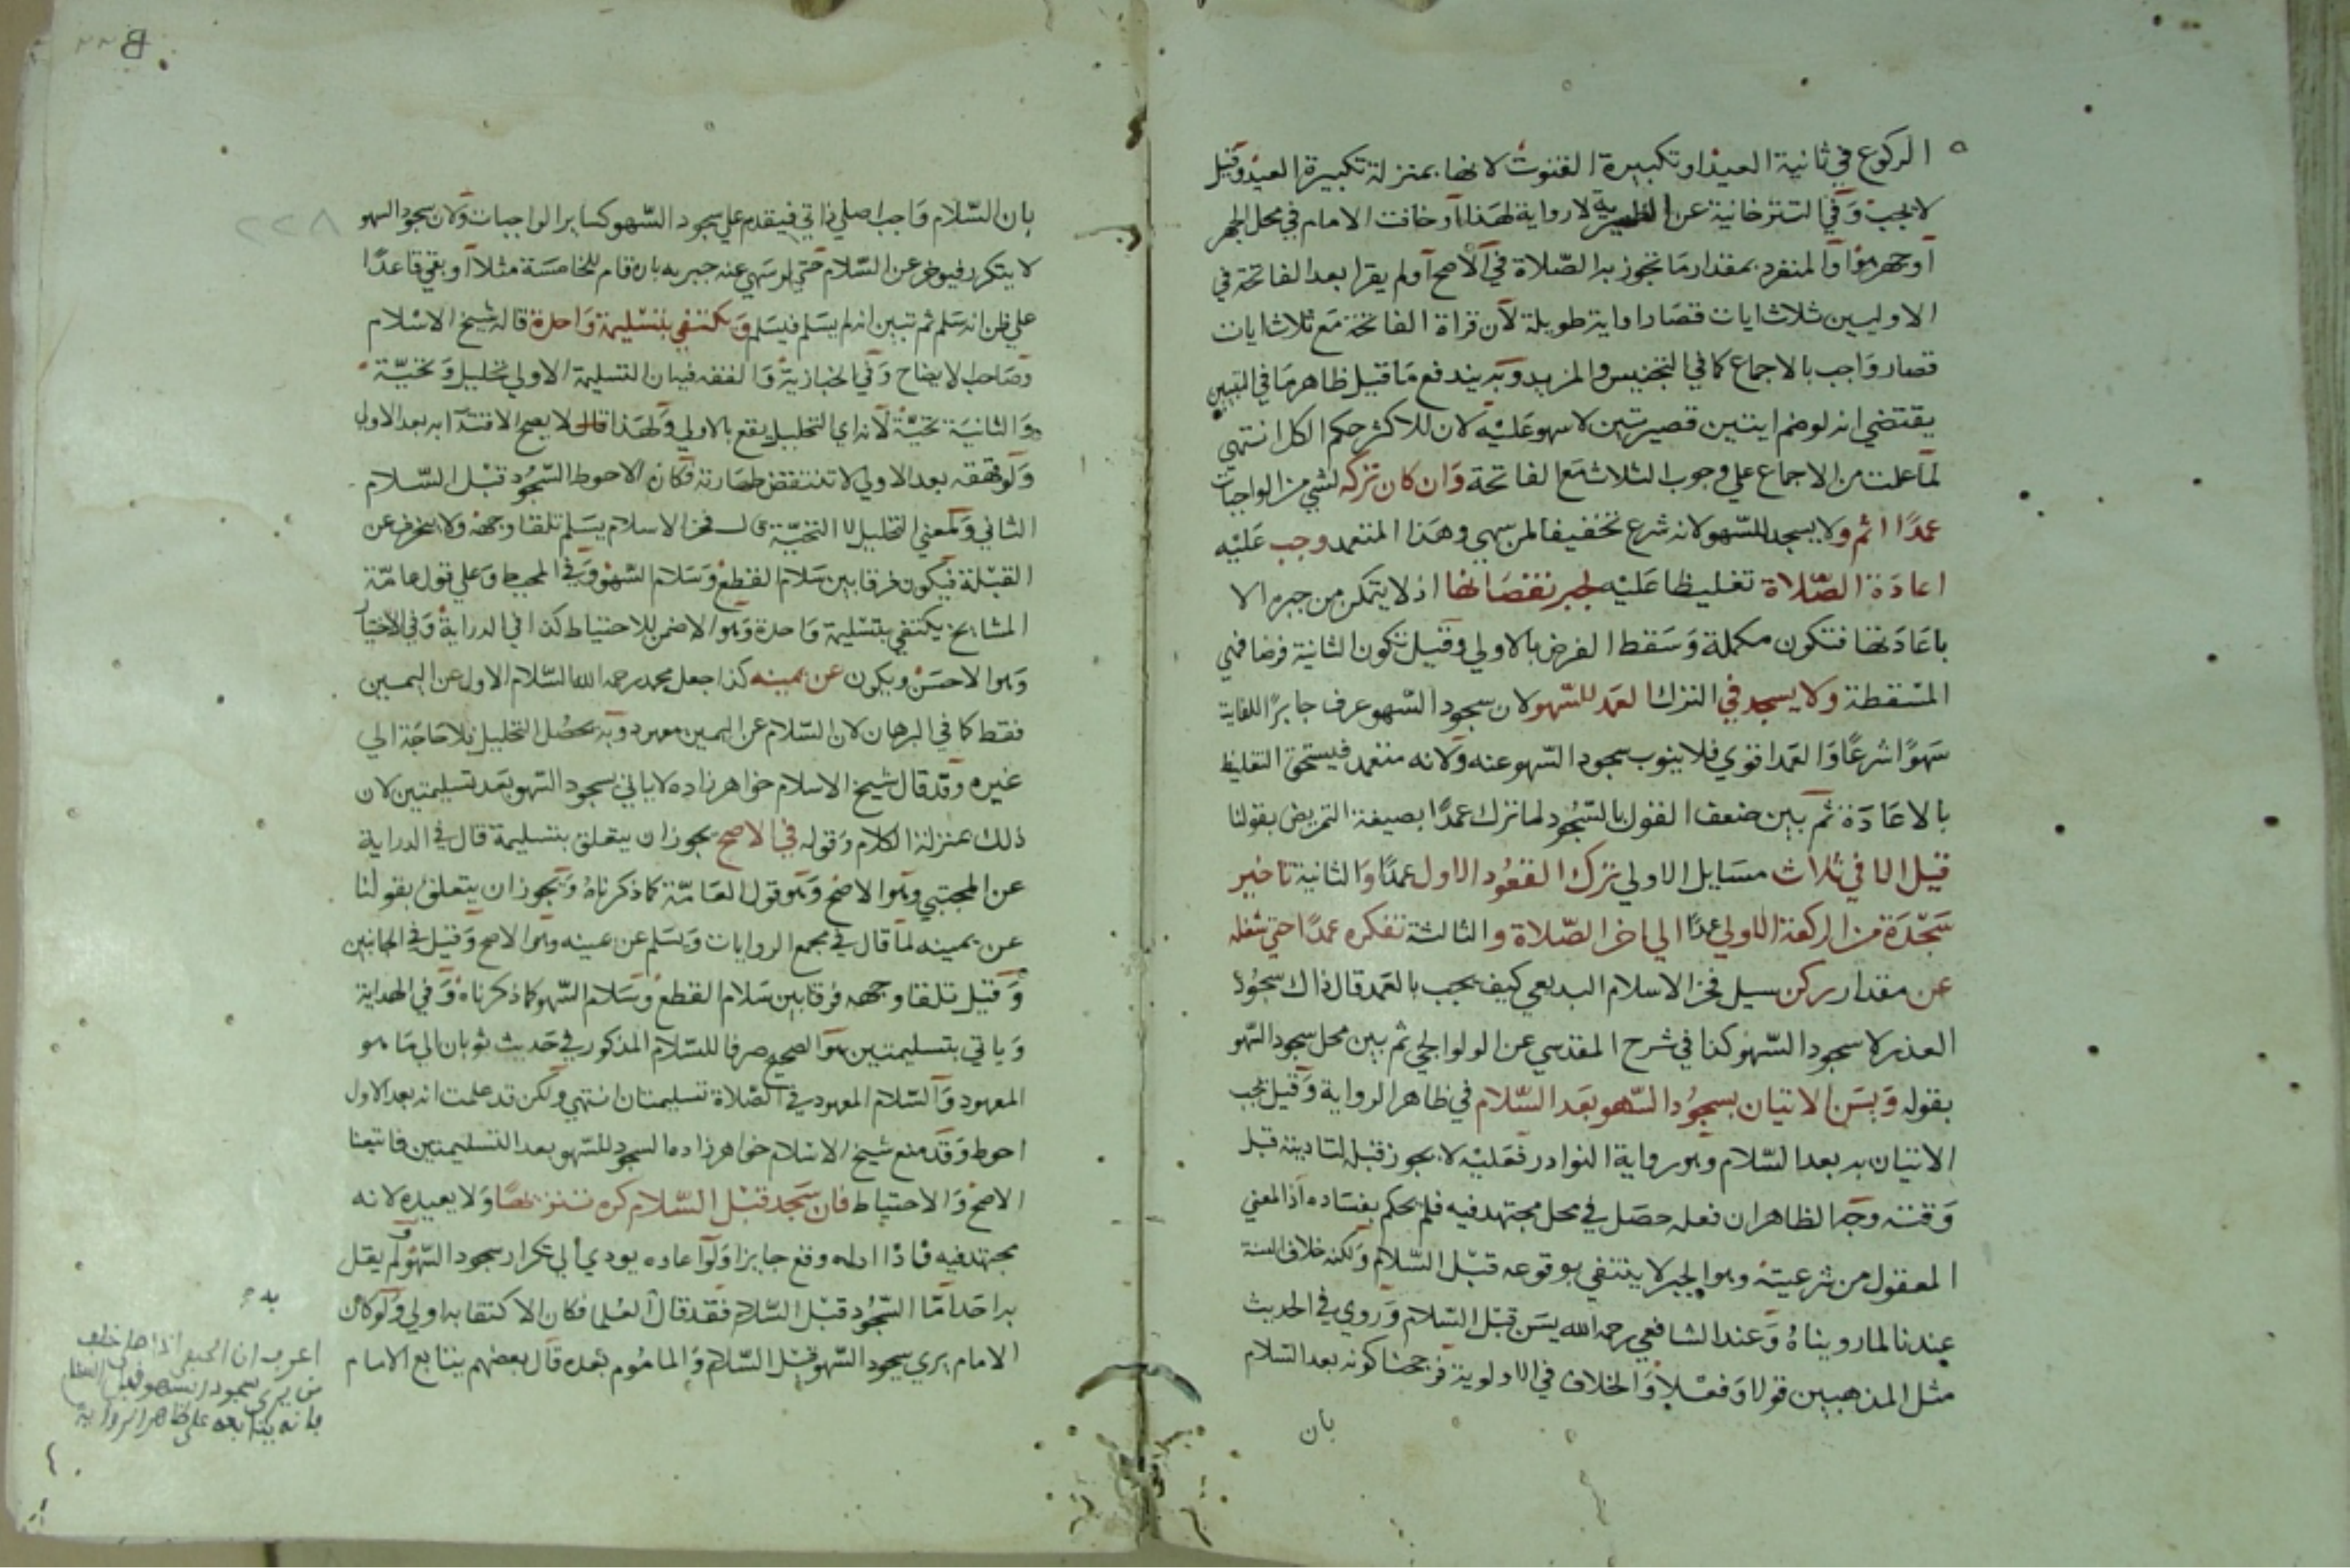 الركوع في ثانية العيد او تكبيرة القنوت لانها بمنزلة تكبيرة العيد وقيل
لا يجب وفي التترخانية عن الظهيرية لا رواية لهذا او خافت الامام في محل الجهر
او جهر هوا والمنفرد بمقدار ما تجوز به الصلاة في الاصح او لم يقرا بعد الفاتحة في
الاوليين ثلاث ايات قصار او اية طويلة لان قراة الفاتحة مع ثلاث ايات
قصار واجب بالاجماع كما في التجنيس والمزيد وبه يندفع ما قيل ظاهر ما في التبيين
يقتضي انه لو ضم ايتين قصيرتين لا سهو عليه لان للاكثر حكم الكل انتهى
لما علمت من الاجماع علي وجوب الثلاث مع الفاتحة وان كان تركه لشي من الواجبات
عمدا اثم ولا يسجد للسهو لانه شرع تخفيفا لمن سهي وهذا المتعمد وجب عليه
اعادة الصلاة تغليظا عليه لجبر نقصانها اذ لا يتمكن من جبره الا
باعادتها فتكون مكملة وسقط الفرض بالاولي وقيل تكون الثانية فرضا فهي
المسقطة ولا يسجد في الترك العمد للسهو لان سجود السهو عرف جابرا للفايت
سهوا شرعا والعمد اقوي فلا ينوب سجود السهو عنه ولانه متعمد فيستحق التغليظ
بالاعادة ثم بين ضعف القول بالسجود لما ترك عمدا بصيغة التمريض بقولنا
قيل الا في ثلاث مسايل الاولي ترك القعود الاول عمدا والثانية تاخير
سجدة من الركعة الاولي عمدا الي اخر الصلاة والثالثة تفكره عمدا حتي شغله
عن مقدار ركن سيل فخر الاسلام البديعي كيف يجب بالعمد قال ذاك سجود
العذر لا سجود السهو كذا في شرح المقدسي عن الولوالجي ثم بين محل سجود السهو
بقوله ويسن الاتيان بسجود السهو بعد السلام في ظاهر الرواية وقيل يجب
الاتيان به بعد السلام وهو رواية النوادر فعليه لا يجوز قبله لتاديته قبل
وقته وجه الظاهر ان فعله حصل في محل مجتهد فيه فلم يحكم بفساده اذ المعني
المعقول من شرعيته وهو الجبر لا ينتفي بوقوعه قبل السلام ولكنه خلاف السنة
عندنا لما رويناه وعند الشافعي رحمه الله يسن قبل السلام وروي في الحديث
مثل المذهبين قولا وفعلا والخلاف في الاولوية فرجحنا كونه بعد السلام
بان
٢٢٨
بان السلام واجب اصلي ذاتي فيقدم علي سجود السهو كساير الواجبات ولان سجود السهو
لا يتكرر فيوخر عن السلام حتي لو سهي عنه جبر به بان قام للخامسة مثلا او بقي قاعدا
علي ظن انه سلم ثم تبين انه لم يسلم فيسلم ويكتفي بتسليمة واحدة قاله شيخ الاسلام
وصاحب الايضاح وفي الخبازية والفقه فيه ان التسليمة الاولي تحليل وتحية
والثانية تحية لانه اي التحليل يقع بالاولي ولهذا قال لا يصح الاقتدا به بعد الاولي
ولو قهقه بعد الاولي لا تنتقض طهارته فكان الاحوط السجود قبل السلام
الثاني ولمعني التحليل لا التحية قال فخر الاسلام يسلم تلقا وجهه ولا ينحرف عن
القبلة فيكون فرقا بين سلام القطع وسلام السهو وفي المحيط وعلي قول عامة
المشايخ يكتفي بتسليمة واحدة وهو الاضمن للاحتياط كذا في الدراية وفي الاختيار
وهو الاحسن ويكون عن يمينه كذا جعل محمد رحمه الله السلام الاول عن اليمين
فقط كما في البرهان لان السلام عن اليمين معهود وبه يحصل التحليل فلا حاجة الي
غيره وقد قال شيخ الاسلام خواهر زاده لا ياتي سجود السهو بعد تسليمتين لان
ذلك بمنزلة الكلام وقوله في الاصح يجوز ان يتعلق بتسليمة قال في الدراية
عن المجتبي وهو الاصح وهو قول العامة كما ذكرناه ويجوز ان يتعلق بقولنا
عن يمينه لما قال في مجمع الروايات ويسلم عن يمينه وهو الاصح وقيل في الجانبين
وقيل تلقا وجهه فرقا بين سلام القطع وسلام السهو كما ذكرناه وفي الهداية
وياتي بتسليمتين هو الصحيح صرفا للسلام المذكور في حديث ثوبان الي ما هو
المعهود والسلام المعهود في الصلاة تسليمتان انتهي ولكن قد علمت انه بعد الاول
احوط وقد منع شيخ الاسلام خواهر زاده السجود للسهو بعد التسليمتين فاتبعنا
الاصح والاحتياط فان سجد قبل السلام كره تنزيها ولا يعيده لانه
مجتهد فيه فاذا اداه وقع جايزا ولو اعاده يودي الي تكرار سجود السهو ولم يقل
به احد اما السجود قبل السلام فقد قال العلما فكان الاكتفا به اولي ولو كان
الامام يري سجود السهو قبل السلام والماموم بعده قال بعضهم يتابع الامام
اعرف ان الحنفي اذا صلى خلف
من يرى سجود السهو قبل السلام
فانه يتابعه على ظاهر الرواية